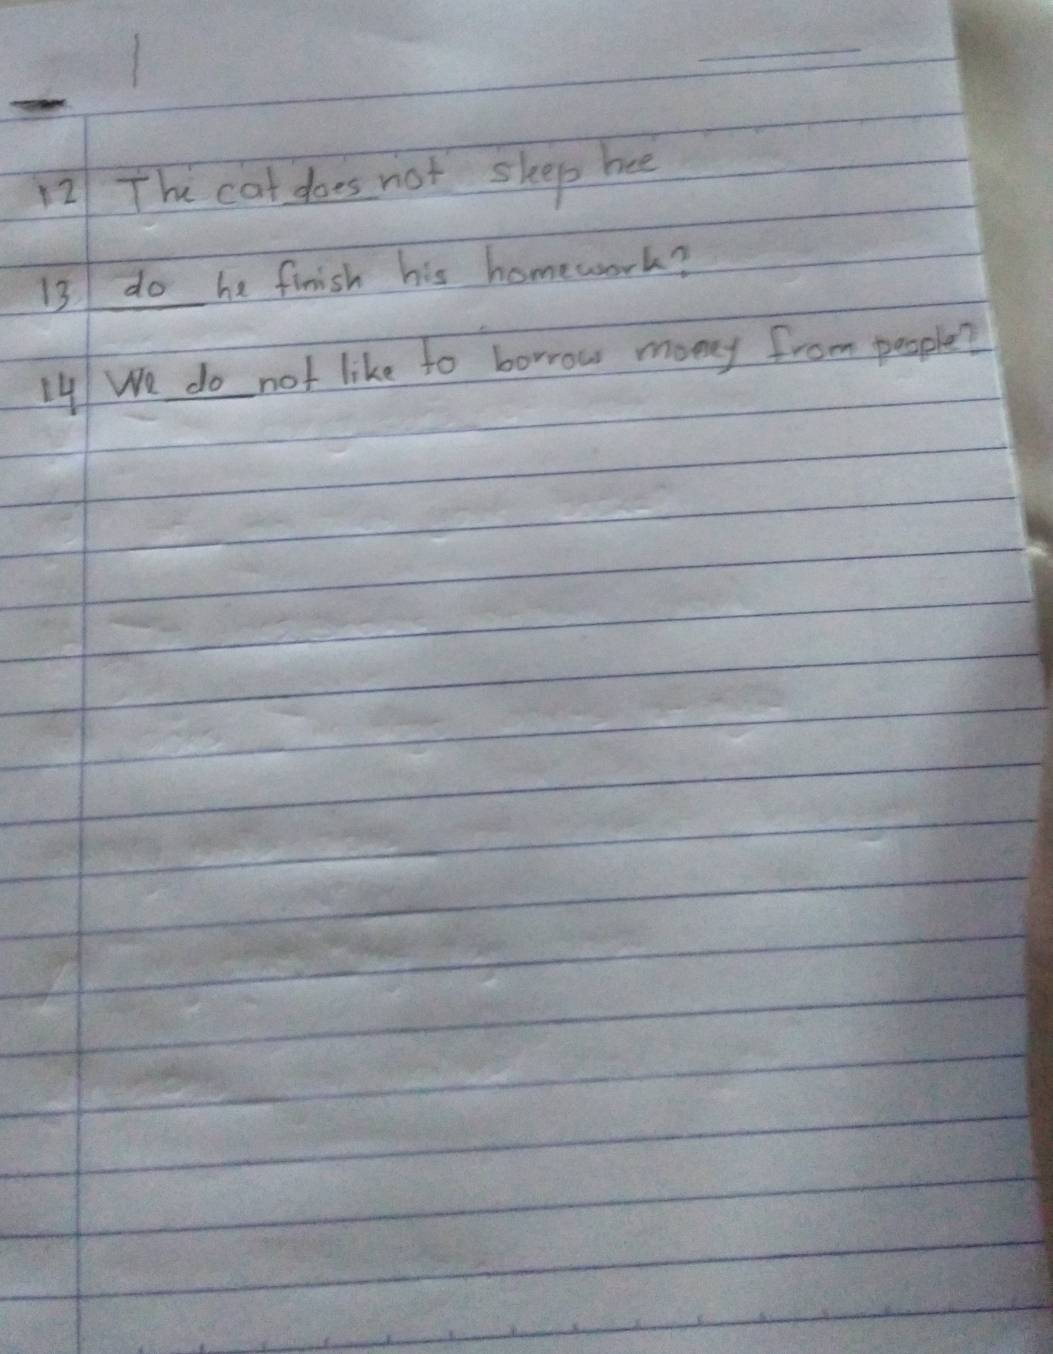 12 The cat does not sleep hee
13 do he finish his homework?
14 We do not like to borrow money from people?